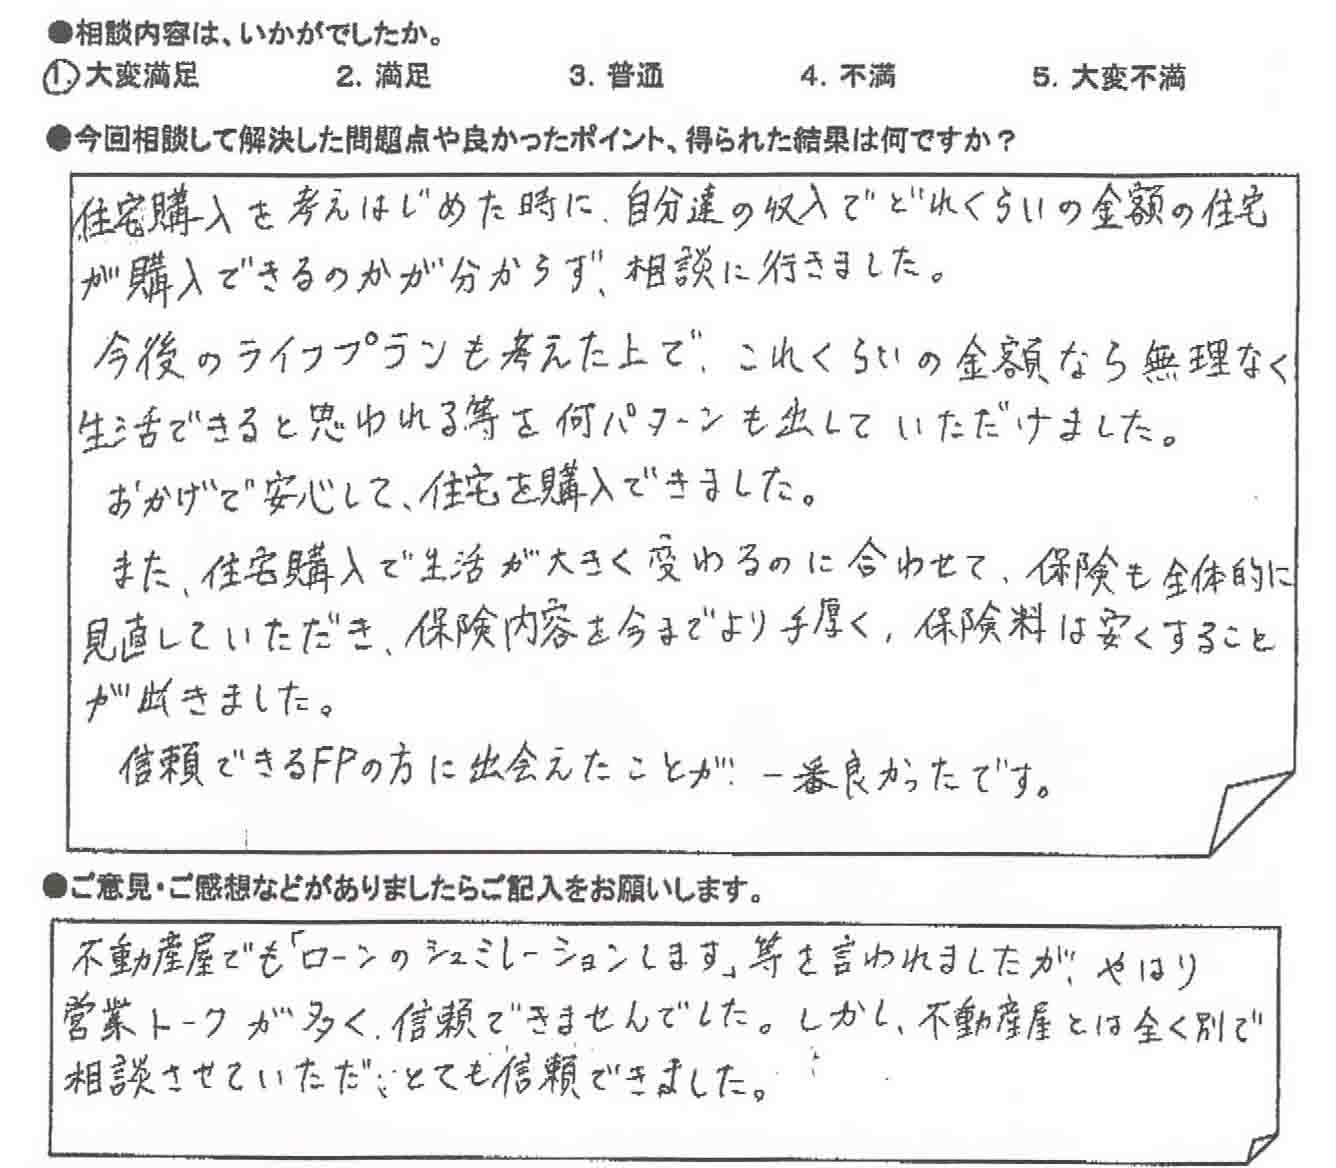 ●相談内容は、いかがでしたか。
1. 大変満足 2. 満足 3. 普通 4. 不満 5. 大変不満
●今回相談して解決した問題点や良かったポイント、得られた結果は何ですか？
住宅購入を考えはじめた時に、自分達の収入でどれくらいの金額の住宅
が購入できるのかが分からず、相談に行きました。
今後のライフプランも考えた上で、これくらいの金額なら無理なく
生活できると思われる等を何パターンも出していただけました。
おかげで安心して、住宅を購入できました。
また、住宅購入で生活が大きく変わるのに合わせて、保険も全体的に
見直していただき、保険内容を今までより手厚く、保険料は安くすること
が出きました。
信頼できるFPの方に出会えたことが、一番良かったです。
●ご意見・ご感想などがありましたらご記入をお願いします。
不動産屋でも「ローンのシュミレーションします」等を言われましたが、やはり
営業トークが多く、信頼できませんでした。しかし、不動産屋とは全く別で
相談させていただ、とても信頼できました。